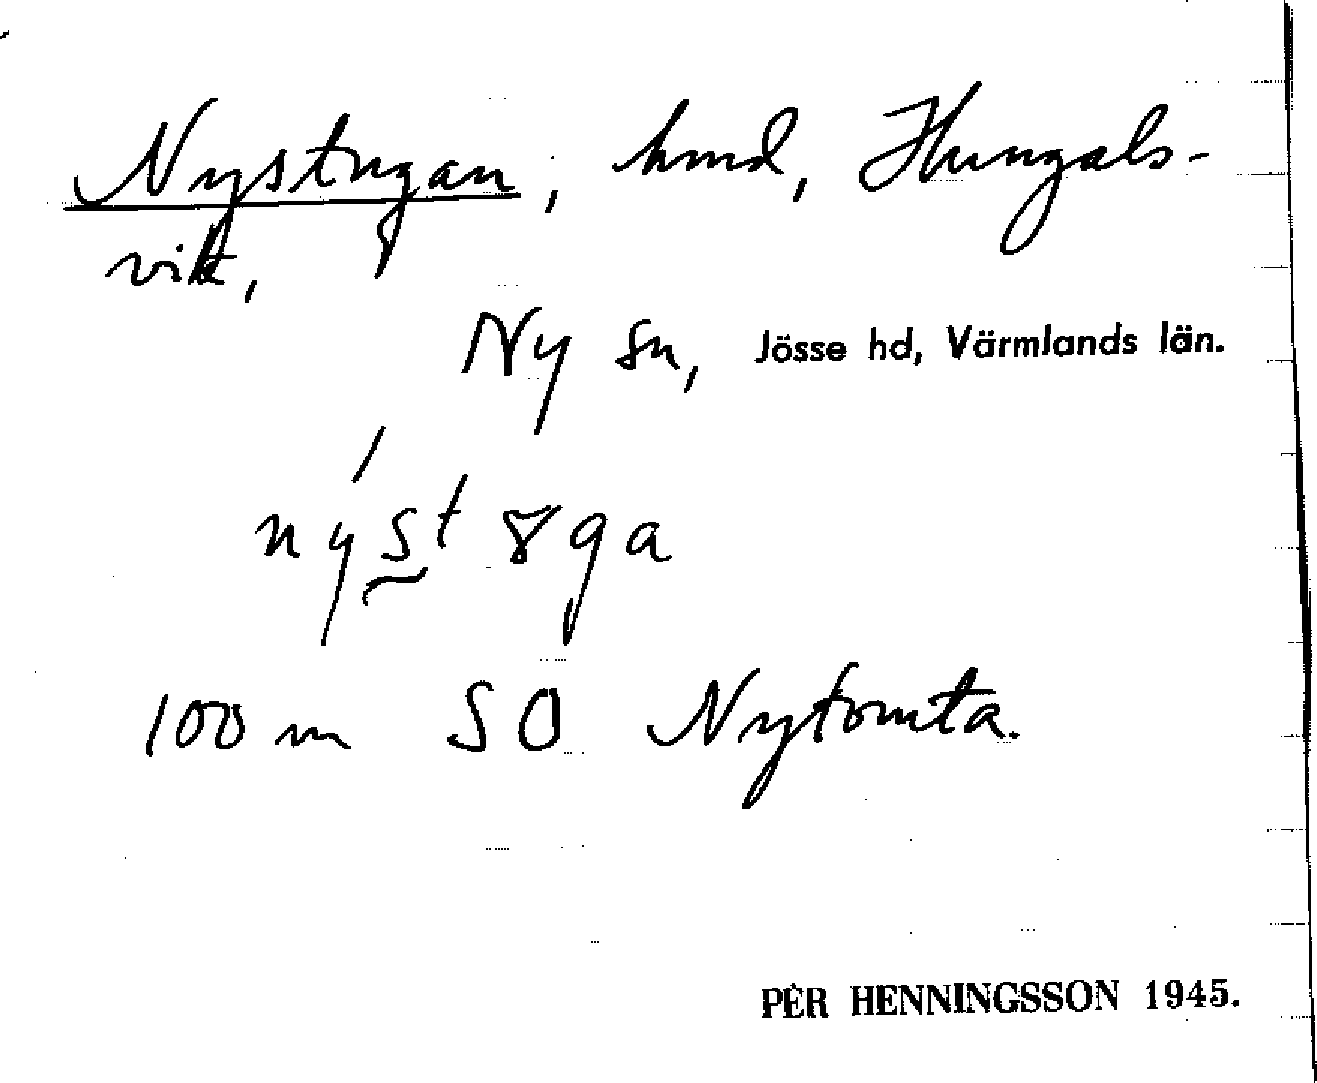 Nystugan, hmd, Hungals-
vik,
Ny sn, Jösse hd, Värmlands län.
100 m SO Nytomta.
PER HENNINGSSON 1945.